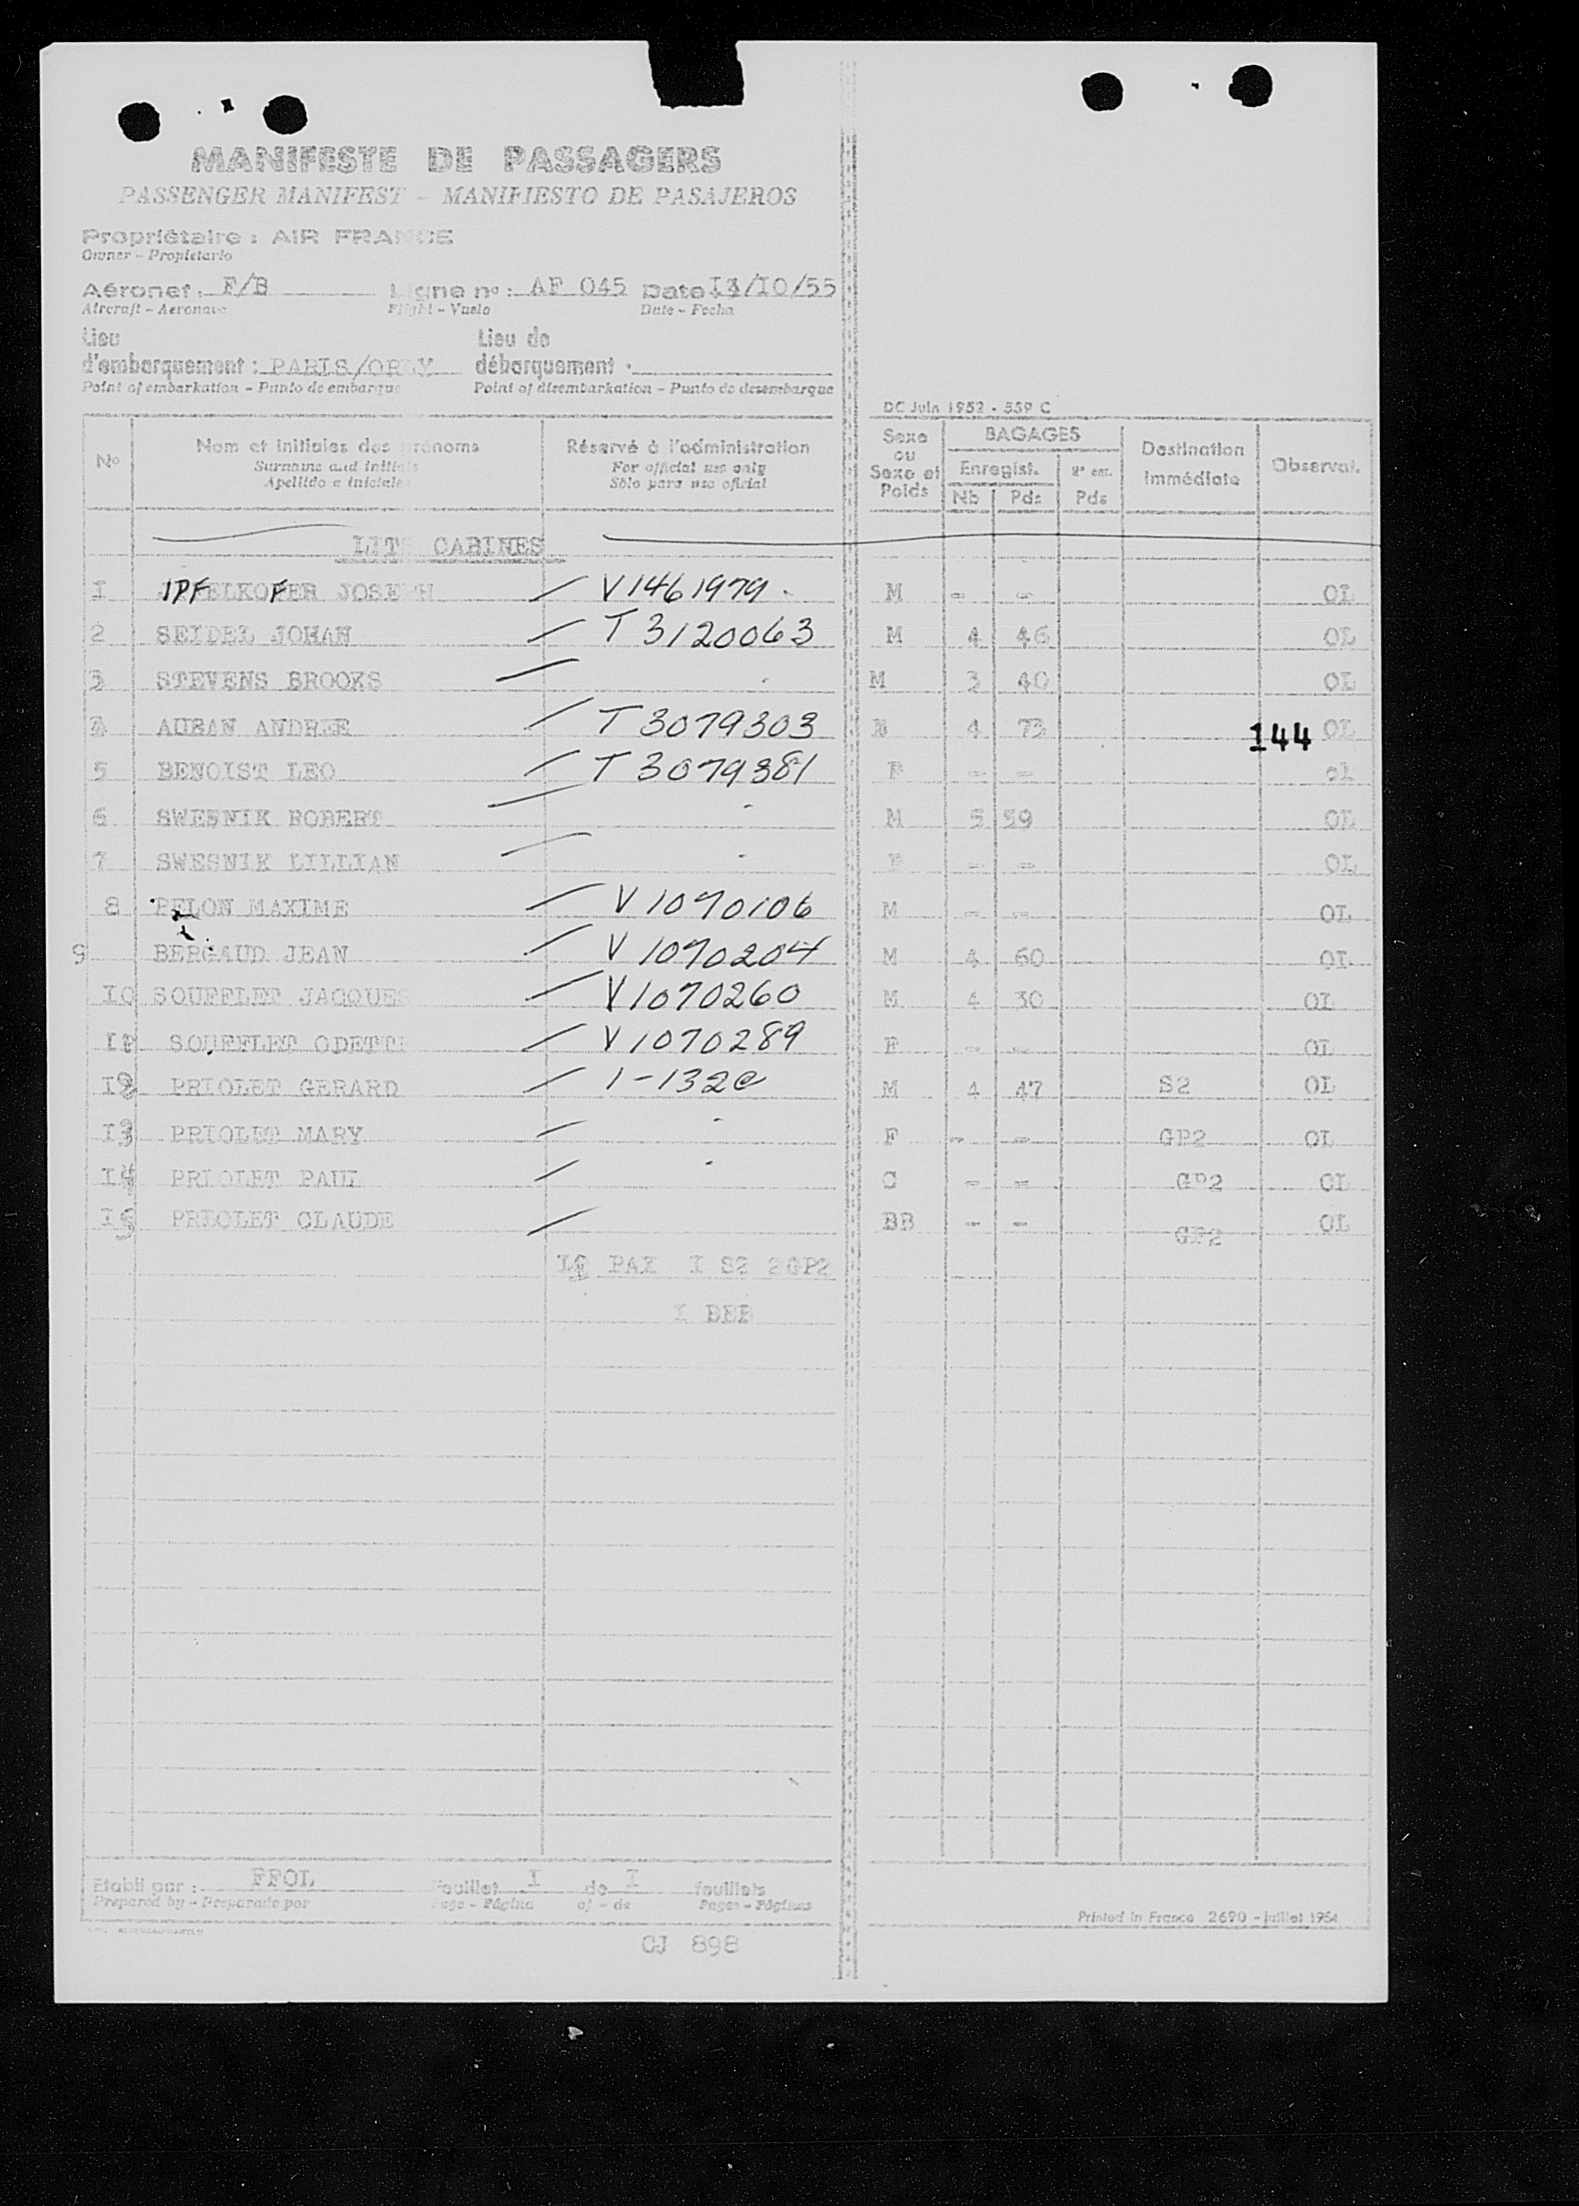 MANIFESTE DE PASSAGERS
PASSENGER MANIFEST - MANIFIESTO DE PASAJEROS
Propriétaire : AIR FRANCE
Owner - Propietario
Aéronef : F/B Ligne no : AF 045 Date I3/IO/55
Aircraft - Aeronave Flight - Vuelo Date - Fecha
Lieu d'embarquement : PARIS/ORLY Lieu de débarquement :
Point of embarkation - Punto de embarque Point of disembarkation - Punto de desembarque
DC Juin 1952 - 559 C
No Nom et initiales des prénoms Réservé à l'administration Sexe ou Sexe et Poids BAGAGES Destination immédiate Observat.
Surname and initials For official use only Enregist.
Apellido e iniciales Sólo para uso oficial Nb Pds Pds
LITS CABINES
I IPFELKOFER JOSEPH V1461979 M - - OL
2 SEIDEL JOHAN T3120063 M 4 46 OL
3 STEVENS BROOKS M 3 40 OL
4 AUBAN ANDREE T3079303 4 73 OL
144
5 BENOIST LEO T3079381 F - - OL
6 SWESNIK ROBERT - M 5 59 OL
7 SWESNIK LILLIAN - F - - OL
8 PELON MAXIME V1070106 M - - OL
9 BERGAUD JEAN V1070204 M 4 60 OL
IO SOUFFLET JACQUES V1070260 M 4 30 OL
II SOUFFLET ODETTE V1070289 F - - OL
I2 PRIOLET GERARD 1-132c M 4 47 S2 OL
I3 PRIOLET MARY - F - - GP2 OL
I4 PRIOLET PAUL - C - - GP2 OL
I5 PRIOLET CLAUDE BB - - GP2 OL
PAX I S2 2GP2
I BEB
Etabli par : FFOL Feuillet I de I feuillets
Prepared by - Preparado por Page - Página of - de Pages - Páginas
Printed in France 2690 - juillet 1954
CJ 898